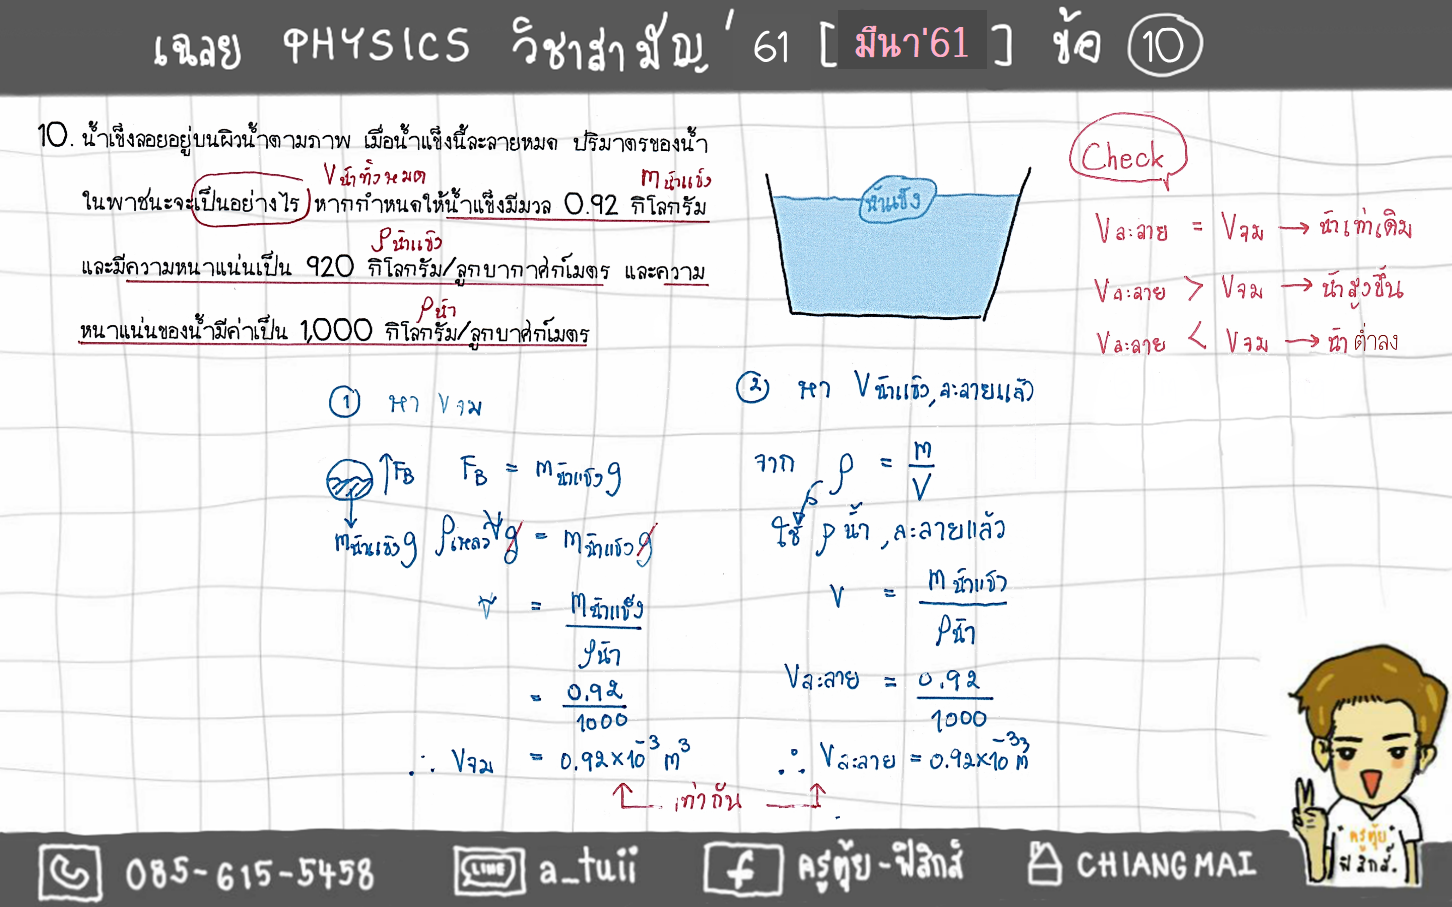 เฉลย PHYSICS วิชาสามัญ' 61 [ มีนา'61 ] ข้อ 10
10. น้ำแข็งลอยอยู่บนผิวน้ำตามภาพ เมื่อน้ำแข็งนี้ละลายหมด ปริมาตรของน้ำ
V น้ำทั้งหมด
m น้ำแข็ง
ในพาชนะจะเป็นอย่างไร หากกำหนดให้น้ำแข็งมีมวล 0.92 กิโลกรัม
ρ น้ำแข็ง
และมีความหนาแน่นเป็น 920 กิโลกรัม/ลูกบากาศก์เมตร และความ
ρ น้ำ
หนาแน่นของน้ำมีค่าเป็น 1,000 กิโลกรัม/ลูกบาศก์เมตร
น้ำแข็ง
Check
V ละลาย = V จม → น้ำเท่าเดิม
V ละลาย > V จม → น้ำสูงขึ้น
V ละลาย < V จม → น้ำต่ำลง
1 หา V จม
F_B F_B = m น้ำแข็ง g
m น้ำแข็ง g ρ เหลว V g = m น้ำแข็ง g
V = m น้ำแข็ง
ρ น้ำ
= 0.92
1000
∴ V จม = 0.92×10⁻³ m³
2 หา V น้ำแข็ง,ละลายแล้ว
จาก ρ = m
V
ใช้ ρ น้ำ, ละลายแล้ว
V = m น้ำแข็ง
ρ น้ำ
V ละลาย = 0.92
1000
∴ V ละลาย = 0.92×10⁻³ m³
เท่ากัน
ครูตุ้ย
ฟิสิกส์.
085-615-5458 LINE a_tuii f ครูตุ้ย-ฟิสิกส์ CHIANG MAI